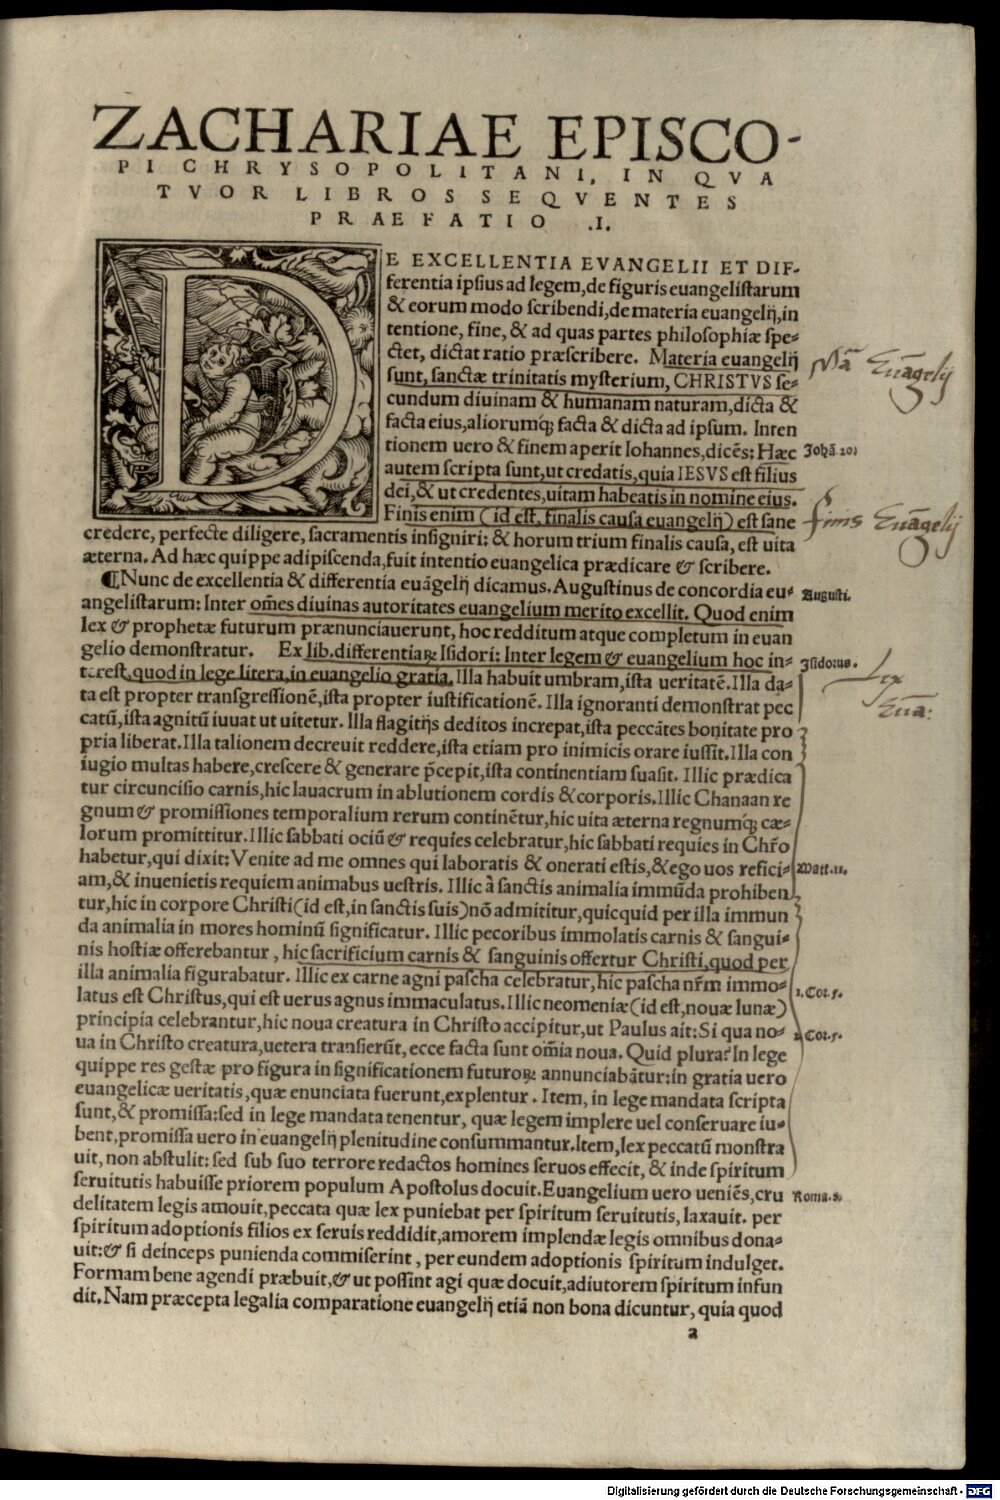 ZACHARIAE EPISCO-
PI CHRYSOPOLITANI, IN QVA
TVOR LIBROS SEQVENTES
PRAEFATIO .I.
DE EXCELLENTIA EVANGELII ET DIF-
ferentia ipsius ad legem, de figuris euangelistarum
& eorum modo scribendi, de materia euangelij, in
tentione, fine, & ad quas partes philosophiæ spe-
ctet, dictat ratio præscribere. Materia euangelij
sunt, sanctæ trinitatis mysterium, CHRISTVS se-
cundum diuinam & humanam naturam, dicta &
facta eius, aliorumq; facta & dicta ad ipsum. Inten
tionem uero & finem aperit Iohannes, dicẽs: Hæc
autem scripta sunt, ut credatis, quia IESVS est filius
dei, & ut credentes, uitam habeatis in nomine eius.
Finis enim (id est, finalis causa euangelij) est sane
credere, perfecte diligere, sacramentis insigniri: & horum trium finalis causa, est uita
æterna. Ad hæc quippe adipiscenda, fuit intentio euangelica prædicare & scribere.
¶Nunc de excellentia & differentia euãgelij dicamus. Augustinus de concordia eu-
angelistarum: Inter om̃es diuinas autoritates euangelium merito excellit. Quod enim
lex & prophetæ futurum prænunciauerunt, hoc redditum atque completum in euan
gelio demonstratur. Ex lib. differentiaꝝ Isidori: Inter legem & euangelium hoc in-
terest, quod in lege litera, in euangelio gratia. Illa habuit umbram, ista ueritatẽ. Illa da-
ta est propter transgressionẽ, ista propter iustificationẽ. Illa ignoranti demonstrat pec
catũ, ista agnitũ iuuat ut uitetur. Illa flagitijs deditos increpat, ista peccãtes bonitate pro
pria liberat. Illa talionem decreuit reddere, ista etiam pro inimicis orare iussit. Illa con
iugio multas habere, crescere & generare p̃cepit, ista continentiam suasit. Illic prædica
tur circuncisio carnis, hic lauacrum in ablutionem cordis & corporis. Illic Chanaan re
gnum & promissiones temporalium rerum continẽtur, hic uita æterna regnumq; cæ-
lorum promittitur. Illic sabbati ociũ & requies celebratur, hic sabbati requies in Chr̃o
habetur, qui dixit: Venite ad me omnes qui laboratis & onerati estis, & ego uos refici-
am, & inuenietis requiem animabus uestris. Illic à sanctis animalia immũda prohiben
tur, hic in corpore Christi (id est, in sanctis suis) nõ admititur, quicquid per illa immun
da animalia in mores hominũ significatur. Illic pecoribus immolatis carnis & sangui-
nis hostiæ offerebantur, hic sacrificium carnis & sanguinis offertur Christi, quod per
illa animalia figurabatur. Illic ex carne agni pascha celebratur, hic pascha nr̃m immo-
latus est Christus, qui est uerus agnus immaculatus. Illic neomeniæ (id est, nouæ lunæ)
principia celebrantur, hic noua creatura in Christo accipitur, ut Paulus ait: Si qua no-
ua in Christo creatura, uetera transierũt, ecce facta sunt om̃ia noua. Quid plura? In lege
quippe res gestæ pro figura in significationem futuroꝝ annunciabãtur: in gratia uero
euangelicæ ueritatis, quæ enunciata fuerunt, explentur. Item, in lege mandata scripta
sunt, & promissa: sed in lege mandata tenentur, quæ legem implere uel conseruare iu-
bent, promissa uero in euangelij plenitudine consummantur. Item, lex peccatũ monstra
uit, non abstulit: sed sub suo terrore redactos homines seruos effecit, & inde spiritum
seruitutis habuisse priorem populum Apostolus docuit. Euangelium uero ueniẽs, cru
delitatem legis amouit, peccata quæ lex puniebat per spiritum seruitutis, laxauit. per
spiritum adoptionis filios ex seruis reddidit, amorem implendæ legis omnibus dona-
uit: & si deinceps punienda commiserint, per eundem adoptionis spiritum indulget.
Formam bene agendi præbuit, & ut possint agi quæ docuit, adiutorem spiritum infun
dit. Nam præcepta legalia comparatione euangelij etiã non bona dicuntur, quia quod
a
Mã Euãgelij
Johã 20)
finis Euãgelij
Augusti.
Isidorus.
Lex
Euã:
Matt.11.
1.Cor.5.
2.Cor.5.
Roma.8.
Digitalisierung gefördert durch die Deutsche Forschungsgemeinschaft - DFG